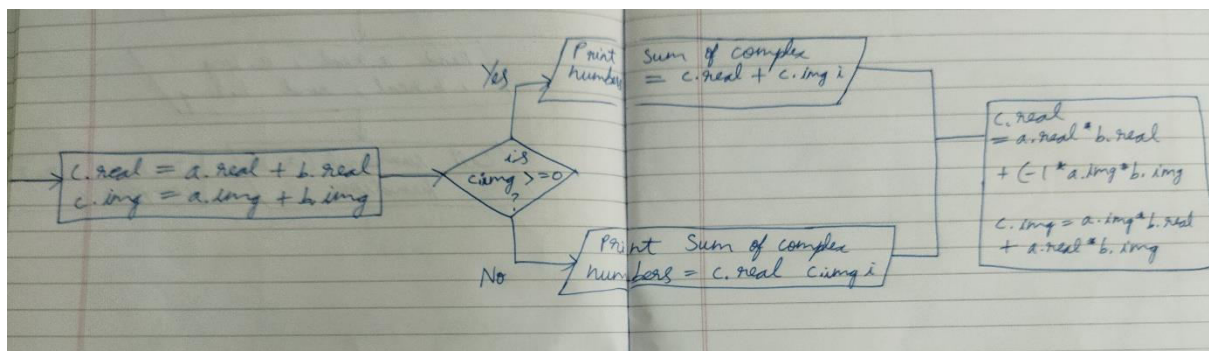 c.real = a.real + b.real
c.img = a.img + b.img
is
c.img >=0
?
Yes
Print Sum of complex
numbers = c.real + c.img i
No
Print Sum of complex
numbers = c.real c.img i
c.real
= a.real * b.real
+ (-1 * a.img * b.img
c.img = a.img * b.real
+ a.real * b.img